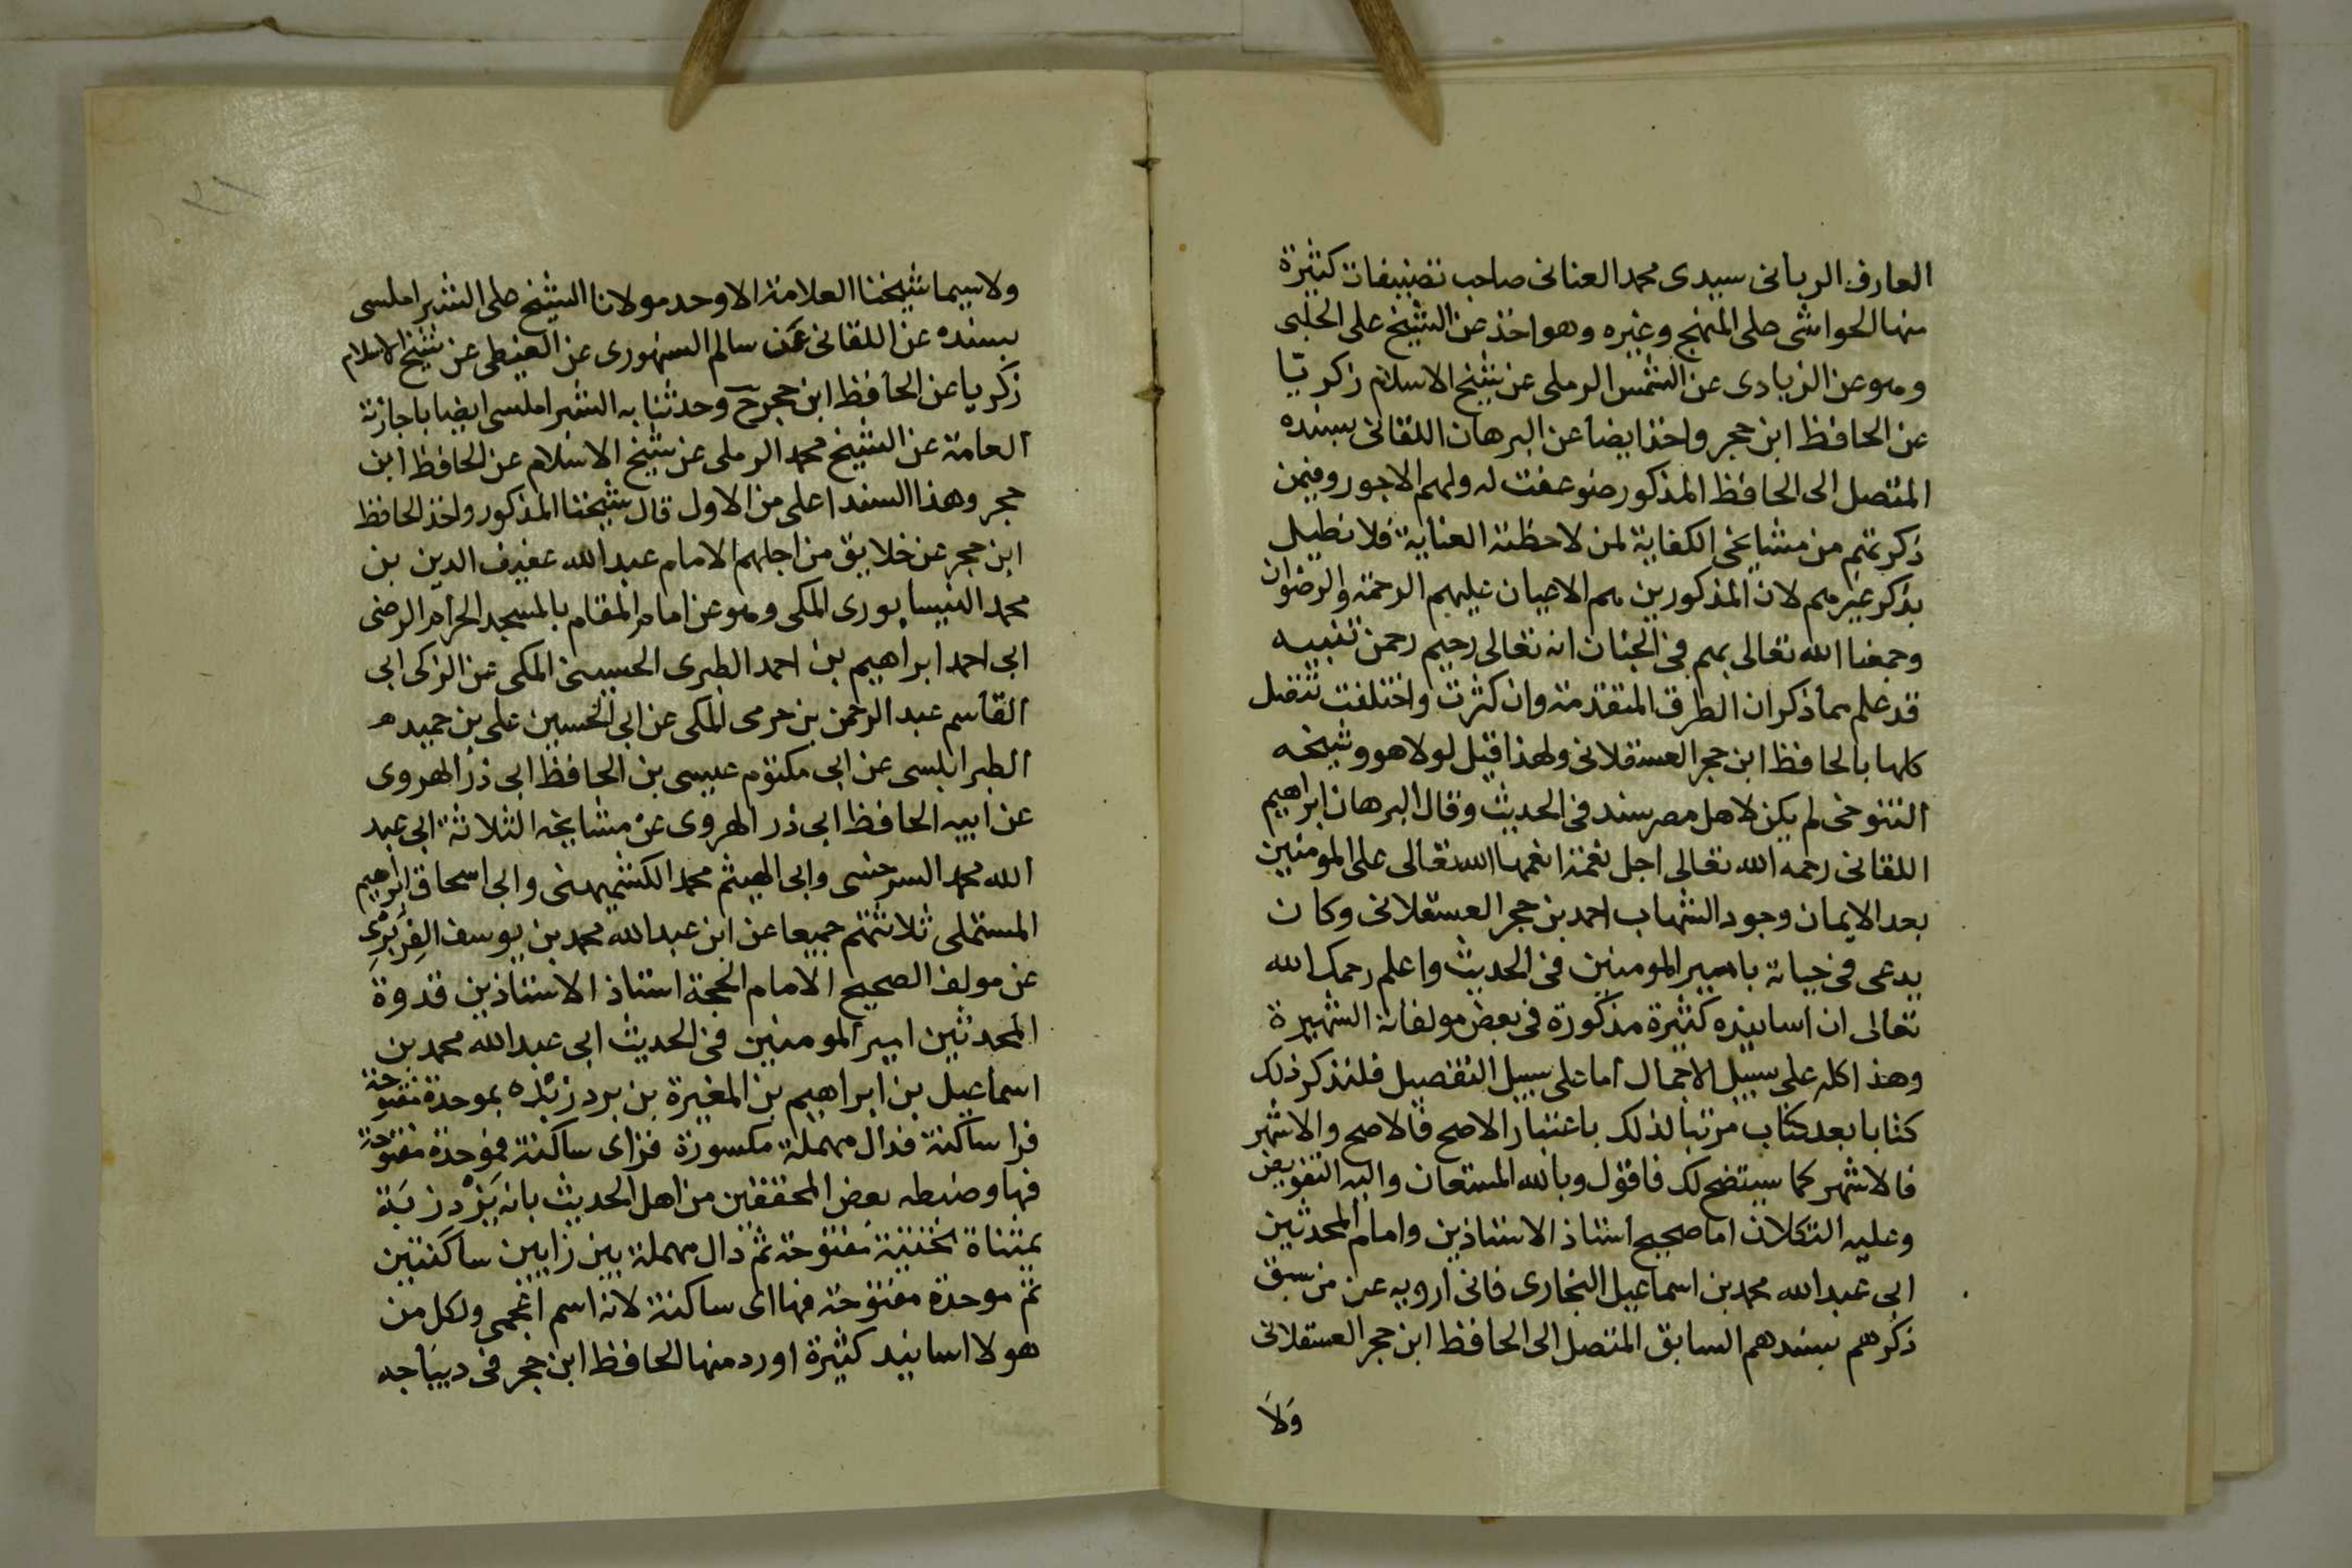 العارف الربانى سيدى محمد العنانى صاحب تصنيفات كثيرة
منها الحواشى على المنهج وغيره وهو اخذ عن الشيخ على الحلبى
وهو عن الزيادى عن الشمس الرملى عن شيخ الاسلام زكريا
عن الحافظ ابن حجر واخذ ايضا عن البرهان اللقانى بسنده
المتصل الى الحافظ المذكور ضوعفت له ولهم الاجور وفيمن
ذكرتهم من مشايخى الكفاية لمن لاحظته العناية فلا نطيل
بذكر غيرهم لان المذكورين هم الاعيان عليهم الرحمة والرضوان
وجمعنا الله تعالى بهم فى الجنان انه تعالى رحيم رحمن تنبيه
قد علم مما ذكر ان الطرق المتقدمة وان كثرت واختلفت تتصل
كلها بالحافظ ابن حجر العسقلانى ولهذا قيل لولا هو وشيخه
التنوخى لم يكن لاهل مصر سند فى الحديث وقال البرهان ابراهيم
اللقانى رحمه الله تعالى اجل نعمة انعمها الله تعالى على المومنين
بعد الايمان وجود الشهاب احمد بن حجر العسقلانى وكان
يدعى فى حياته بامير المومنين فى الحديث واعلم رحمك الله
تعالى ان اسانيده كثيرة مذكورة فى بعض مولفاته الشهيرة
وهذا كله على سبيل الاجمال اما على سبيل التفصيل فلنذكر ذلك
كتابا بعد كتاب مرتبا لذلك باعتبار الاصح فالاصح والاشهر
فالاشهر كما سيتضح لك فاقول وبالله المستعان واليه التفويض
وعليه التكلان اما صحيح استاذ الاستاذين وامام المحدثين
ابى عبد الله محمد بن اسماعيل البخارى فانى ارويه عن من سبق
ذكرهم بسندهم السابق المتصل الى الحافظ ابن حجر العسقلانى
وَلَا
٢١
ولا سيما شيخنا العلامة الاوحد مولانا الشيخ على الشبراملسى
بسنده عن اللقانى عن سالم السنهورى عن الغيطى عن شيخ الاسلام
زكريا عن الحافظ ابن حجر ح وحدثنا به الشبراملسى ايضا باجازته
العامة عن الشيخ محمد الرملى عن شيخ الاسلام عن الحافظ ابن
حجر وهذا السند اعلى من الاول قال شيخنا المذكور واخذ الحافظ
ابن حجر عن خلايق من اجلهم الامام عبد الله عفيف الدين بن
محمد النيسابورى المكى وهو عن امام المقام بالمسجد الحرام الرضى
ابى احمد ابراهيم بن احمد الطبرى الحسينى المكى عن الزكى ابى
القاسم عبد الرحمن بن حرمى المكى عن ابى الحسين على بن حميد
الطرابلسى عن ابى مكتوم عيسى بن الحافظ ابى ذر الهروى
عن ابيه الحافظ ابى ذر الهروى عن مشايخه الثلاثة ابى عبد
الله محمد السرخسى وابى الهيثم محمد الكشميهنى وابى اسحاق ابراهيم
المستملى ثلاثتهم جميعا عن ابن عبد الله محمد بن يوسف الفِرَبرى
عن مولف الصحيح الامام الحجة استاذ الاستاذين قدوة
المحدثين امير المومنين فى الحديث ابى عبد الله محمد بن
اسماعيل بن ابراهيم بن المغيرة بن بردزبه بموحدة مفتوحة
فرا ساكنة فدال مهملة مكسورة فزاى ساكنة فموحدة مفتوحة
فها وضبطه بعض المحققين من اهل الحديث بانه يَزْدزبَة
بمثناة تحتية مفتوحة ثم دال مهملة بين زايين ساكنتين
ثم موحدة مفتوحة فها اى ساكنة لانه اسم اعجمى ولكل من
هولا اسانيد كثيرة اورد منها الحافظ ابن حجر فى ديباجه